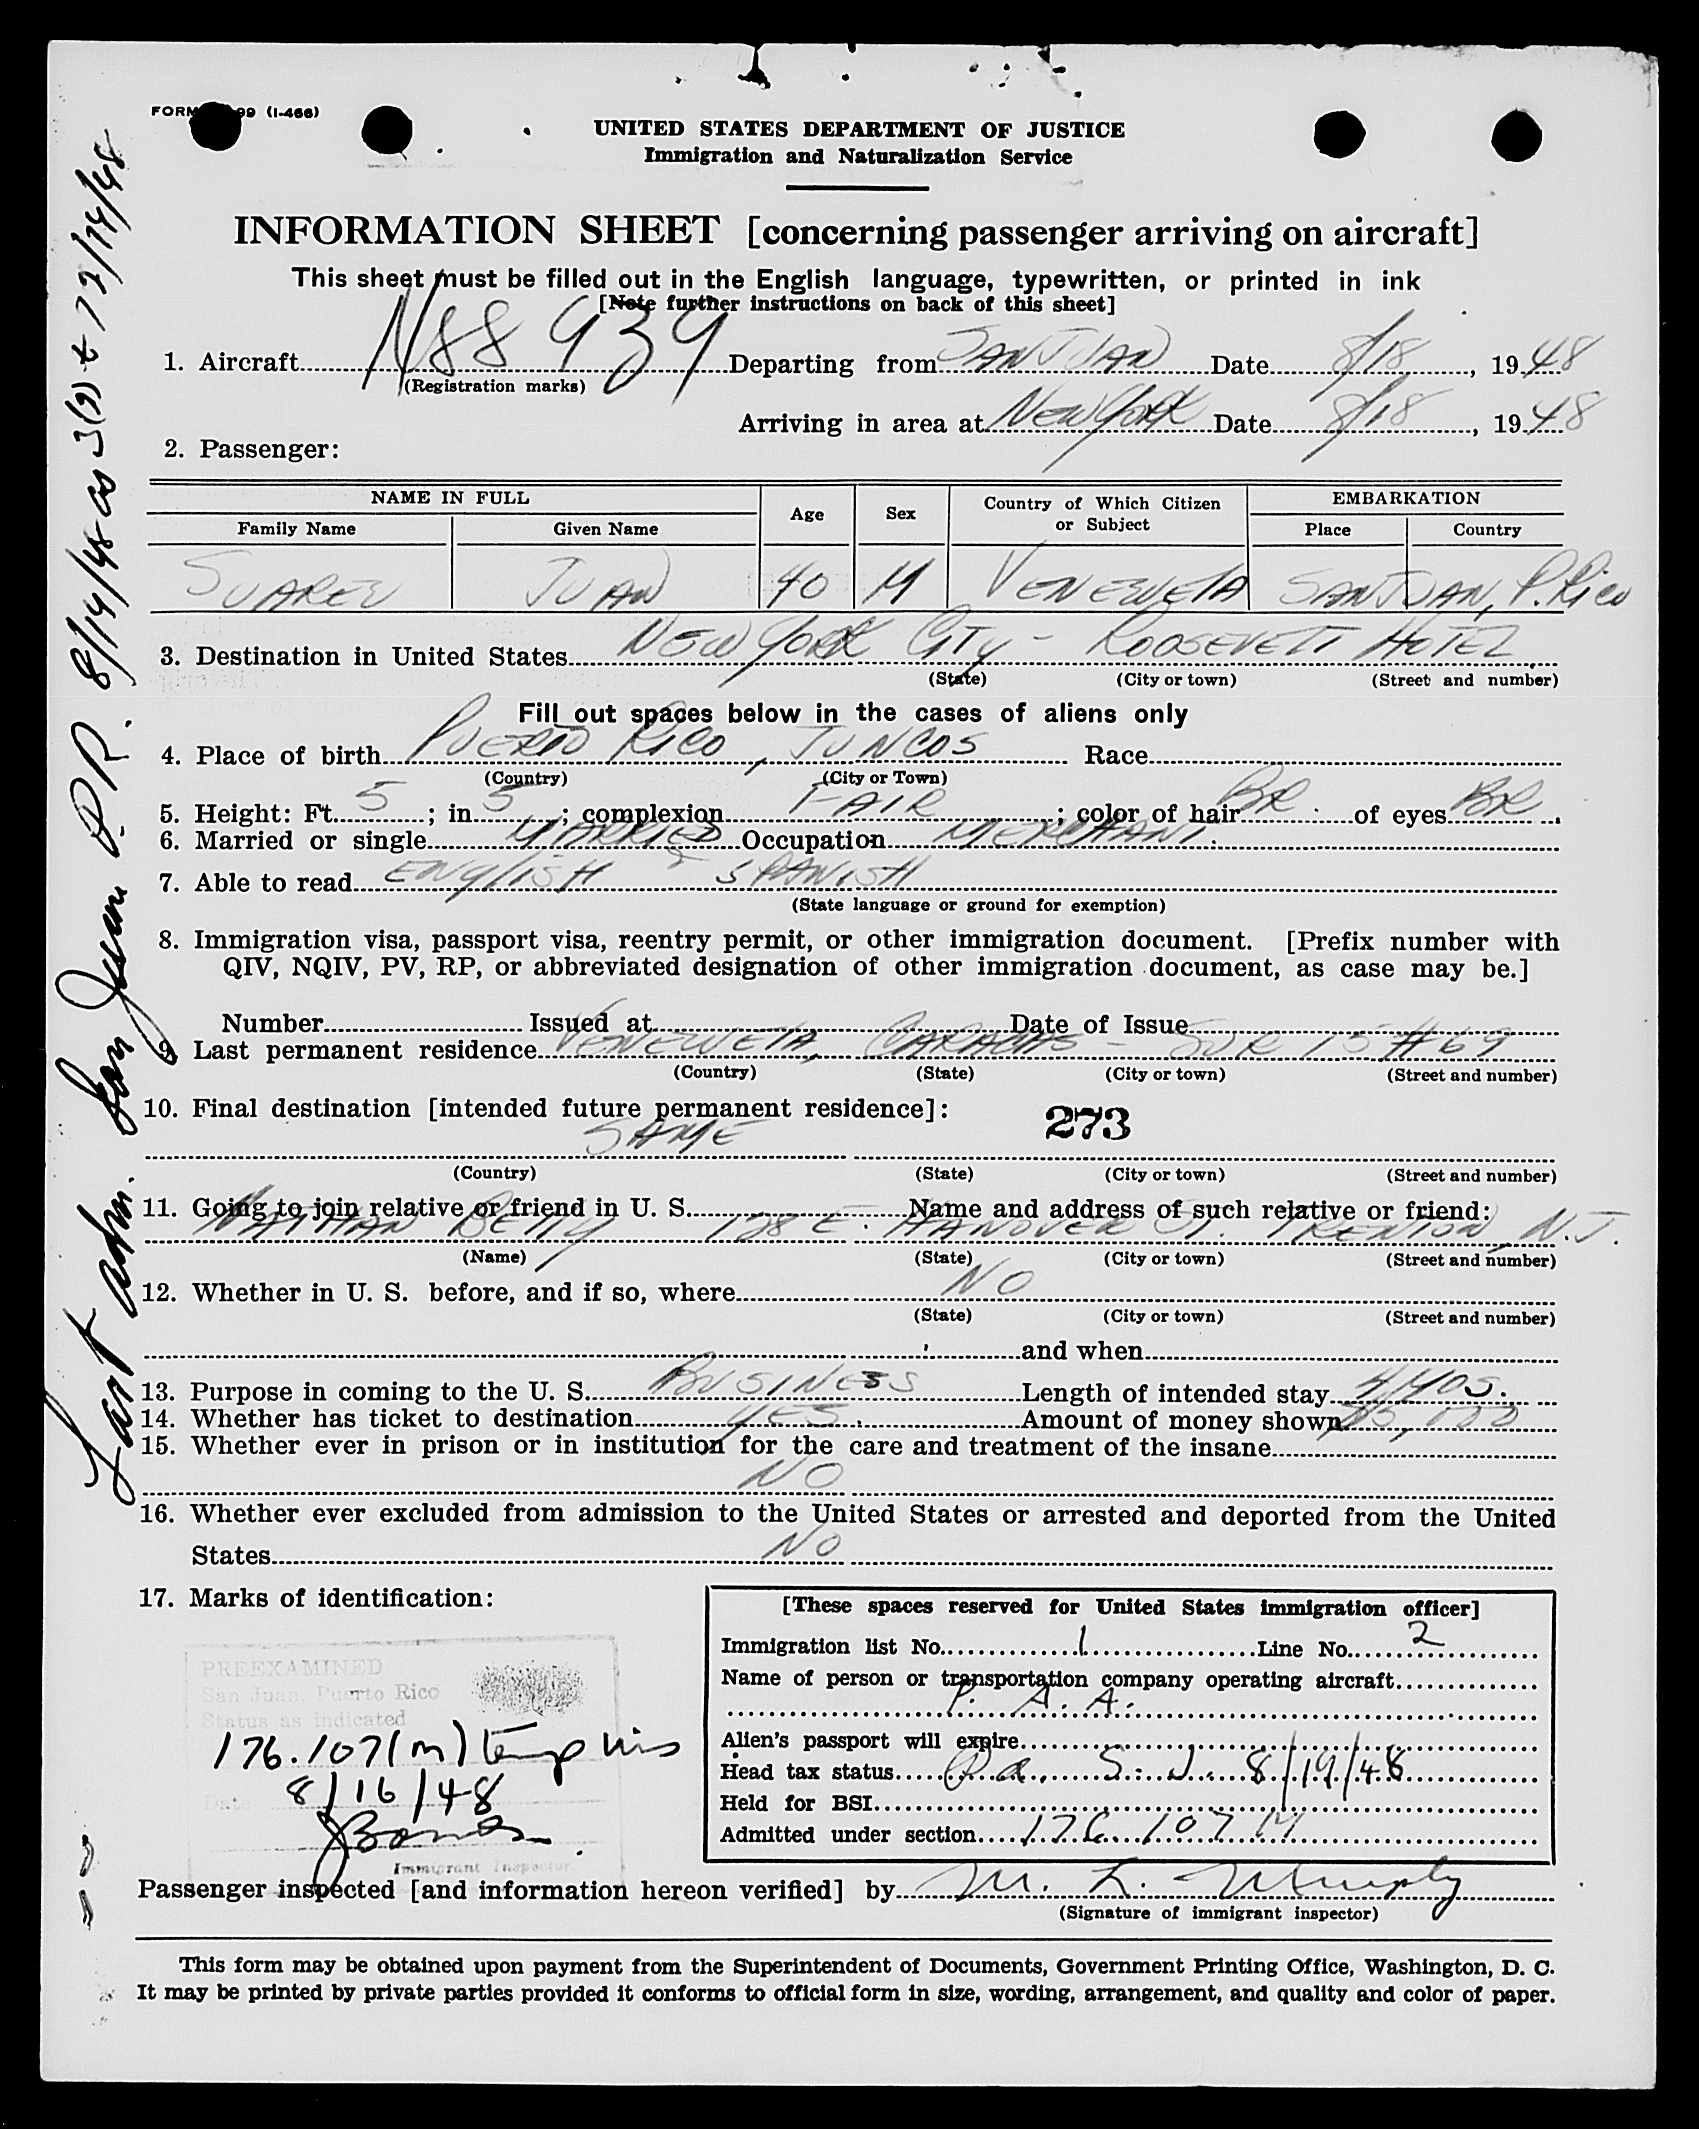 FORM 99 (I-466)
UNITED STATES DEPARTMENT OF JUSTICE
Immigration and Naturalization Service
INFORMATION SHEET [concerning passenger arriving on aircraft]
This sheet must be filled out in the English language, typewritten, or printed in ink
[Note further instructions on back of this sheet]
1. Aircraft N88939 Departing from SAN JUAN Date 8/18, 1948
(Registration marks)
Arriving in area at New York Date 8/18, 1948
2. Passenger:
NAME IN FULL Age Sex Country of Which Citizen or Subject EMBARKATION
Family Name Given Name Place Country
SUAREZ JUAN 40 M VENEZUELA SAN JUAN, P. Rico
3. Destination in United States NEW YORK CITY - ROOSEVELT HOTEL
(State) (City or town) (Street and number)
Fill out spaces below in the cases of aliens only
4. Place of birth PUERTO RICO, JUNCOS Race
(Country) (City or Town)
5. Height: Ft. 5; in 5; complexion FAIR; color of hair BR of eyes BR.
6. Married or single MARRIED Occupation MERCHANT.
7. Able to read ENGLISH & SPANISH
(State language or ground for exemption)
8. Immigration visa, passport visa, reentry permit, or other immigration document. [Prefix number with
QIV, NQIV, PV, RP, or abbreviated designation of other immigration document, as case may be.]
Number Issued at Date of Issue
9. Last permanent residence VENEZUELA, CARACAS - SUR 15 #69
(Country) (State) (City or town) (Street and number)
10. Final destination [intended future permanent residence]: 273
SAME
(Country) (State) (City or town) (Street and number)
11. Going to join relative or friend in U. S. Name and address of such relative or friend:
NATHAN BETTY 128 E. HANOVER ST. TRENTON, N.J.
(Name) (State) (City or town) (Street and number)
12. Whether in U. S. before, and if so, where NO
(State) (City or town) (Street and number)
and when
13. Purpose in coming to the U. S. BUSINESS Length of intended stay
14. Whether has ticket to destination YES. Amount of money shown
15. Whether ever in prison or in institution for the care and treatment of the insane
NO
16. Whether ever excluded from admission to the United States or arrested and deported from the United
States NO
17. Marks of identification:
PREEXAMINED
San Juan, Puerto Rico
Status as indicated
176.107(m) temp vis
Date 8/16/48
Immigrant Inspector
[These spaces reserved for United States immigration officer]
Immigration list No. 1 Line No. 2
Name of person or transportation company operating aircraft
P. A. A.
Alien's passport will expire
Head tax status Pa. S. J. 8/19/48
Held for BSI
Admitted under section 176.107 M
Passenger inspected [and information hereon verified] by M. L. Murphy
(Signature of immigrant inspector)
This form may be obtained upon payment from the Superintendent of Documents, Government Printing Office, Washington, D. C.
It may be printed by private parties provided it conforms to official form in size, wording, arrangement, and quality and color of paper.
Last adm. San Juan P.R. 8/14/48 as 3(9)